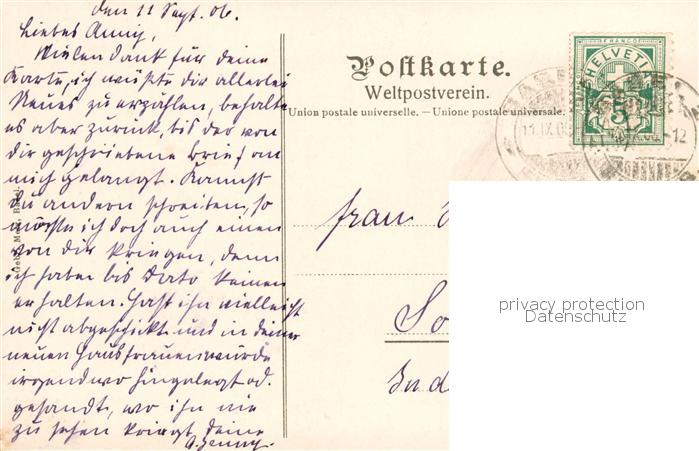 den 11 Sept. 06.
Liebes Anny,
Vielen Dank für deine
Karte, ich wüßte dir allerlei
Neues zu erzählen, behalte
es aber zurück, bis der von
dir geschriebene Brief an
mich gelangt. Kannst
du andern schreiben, so
möchte ich doch auch einen
von dir kriegen, denn
ich habe bis dato keinen
erhalten. Hast ihn vielleicht
nicht abgeschickt und in deiner
neuen Hausfrauenwürde
irgendwo hingelegt od.
gesandt, wo ihn nie
zu sehen kriegt deine
Postkarte.
Weltpostverein.
Union postale universelle. — Unione postale universale.
FRANCO
HELVETIA
5
11.IX.06
-12
Frau
privacy protection
Datenschutz